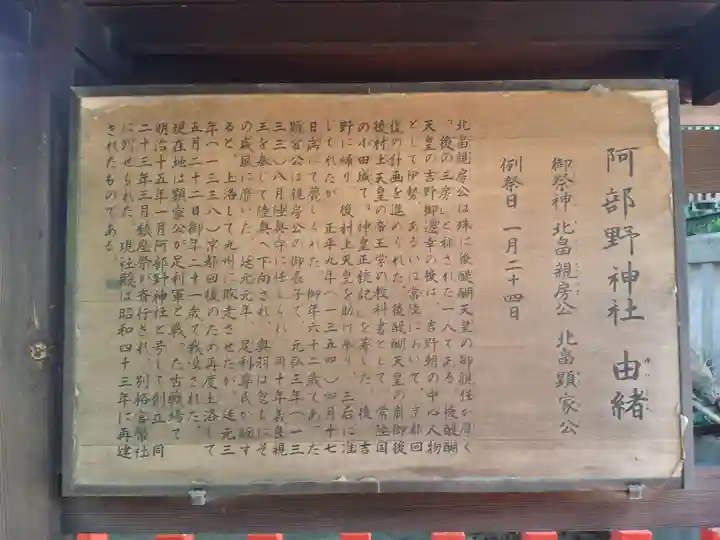 阿部野神社 由緒
ゆいしょ
御祭神 北畠親房公 北畠顕家公
例祭日 一月二十四日
北畠親房公は殊に後醍醐天皇の御親任が厚く
「後の三房」と称された一人である。後醍醐
天皇の吉野御遷幸の後は、吉野朝の中心人物
として伊勢、あるいは常陸において、京都回
復の計画を進められた。後醍醐天皇の崩御後
後村上天皇の帝王学の教科書として、常陸国
の小田城で「神皇正統記」を著した。後、吉
野に帰り、後村上天皇を助け奉り、三后に准
じられたが、正平九年（一三五四）四月十七
日病にて薨じられた。御年六十二歳であった
顕家公は親房公の御長子で、元弘三年（一三
三三）八月陸奥守に任じられ、同十年義良親
王を奉じて陸奥へ下向され、奥羽は忽ちにそ
の威風に靡いた。延元元年、足利尊氏が叛す
ると、上洛して九州に敗走させたが、延元三
年（一三三八）京都回復のため再度上洛して
五月二十二日御年二十一歳で戦没された。
現在地は顕家公が足利軍と戦った古戦場で
明治十五年一月阿部野神社と号して創立、同
二十三年三月鎮座祭が斎行され、別格官幣社
に列せられた。現社殿は昭和四十三年に再建
されたものである。